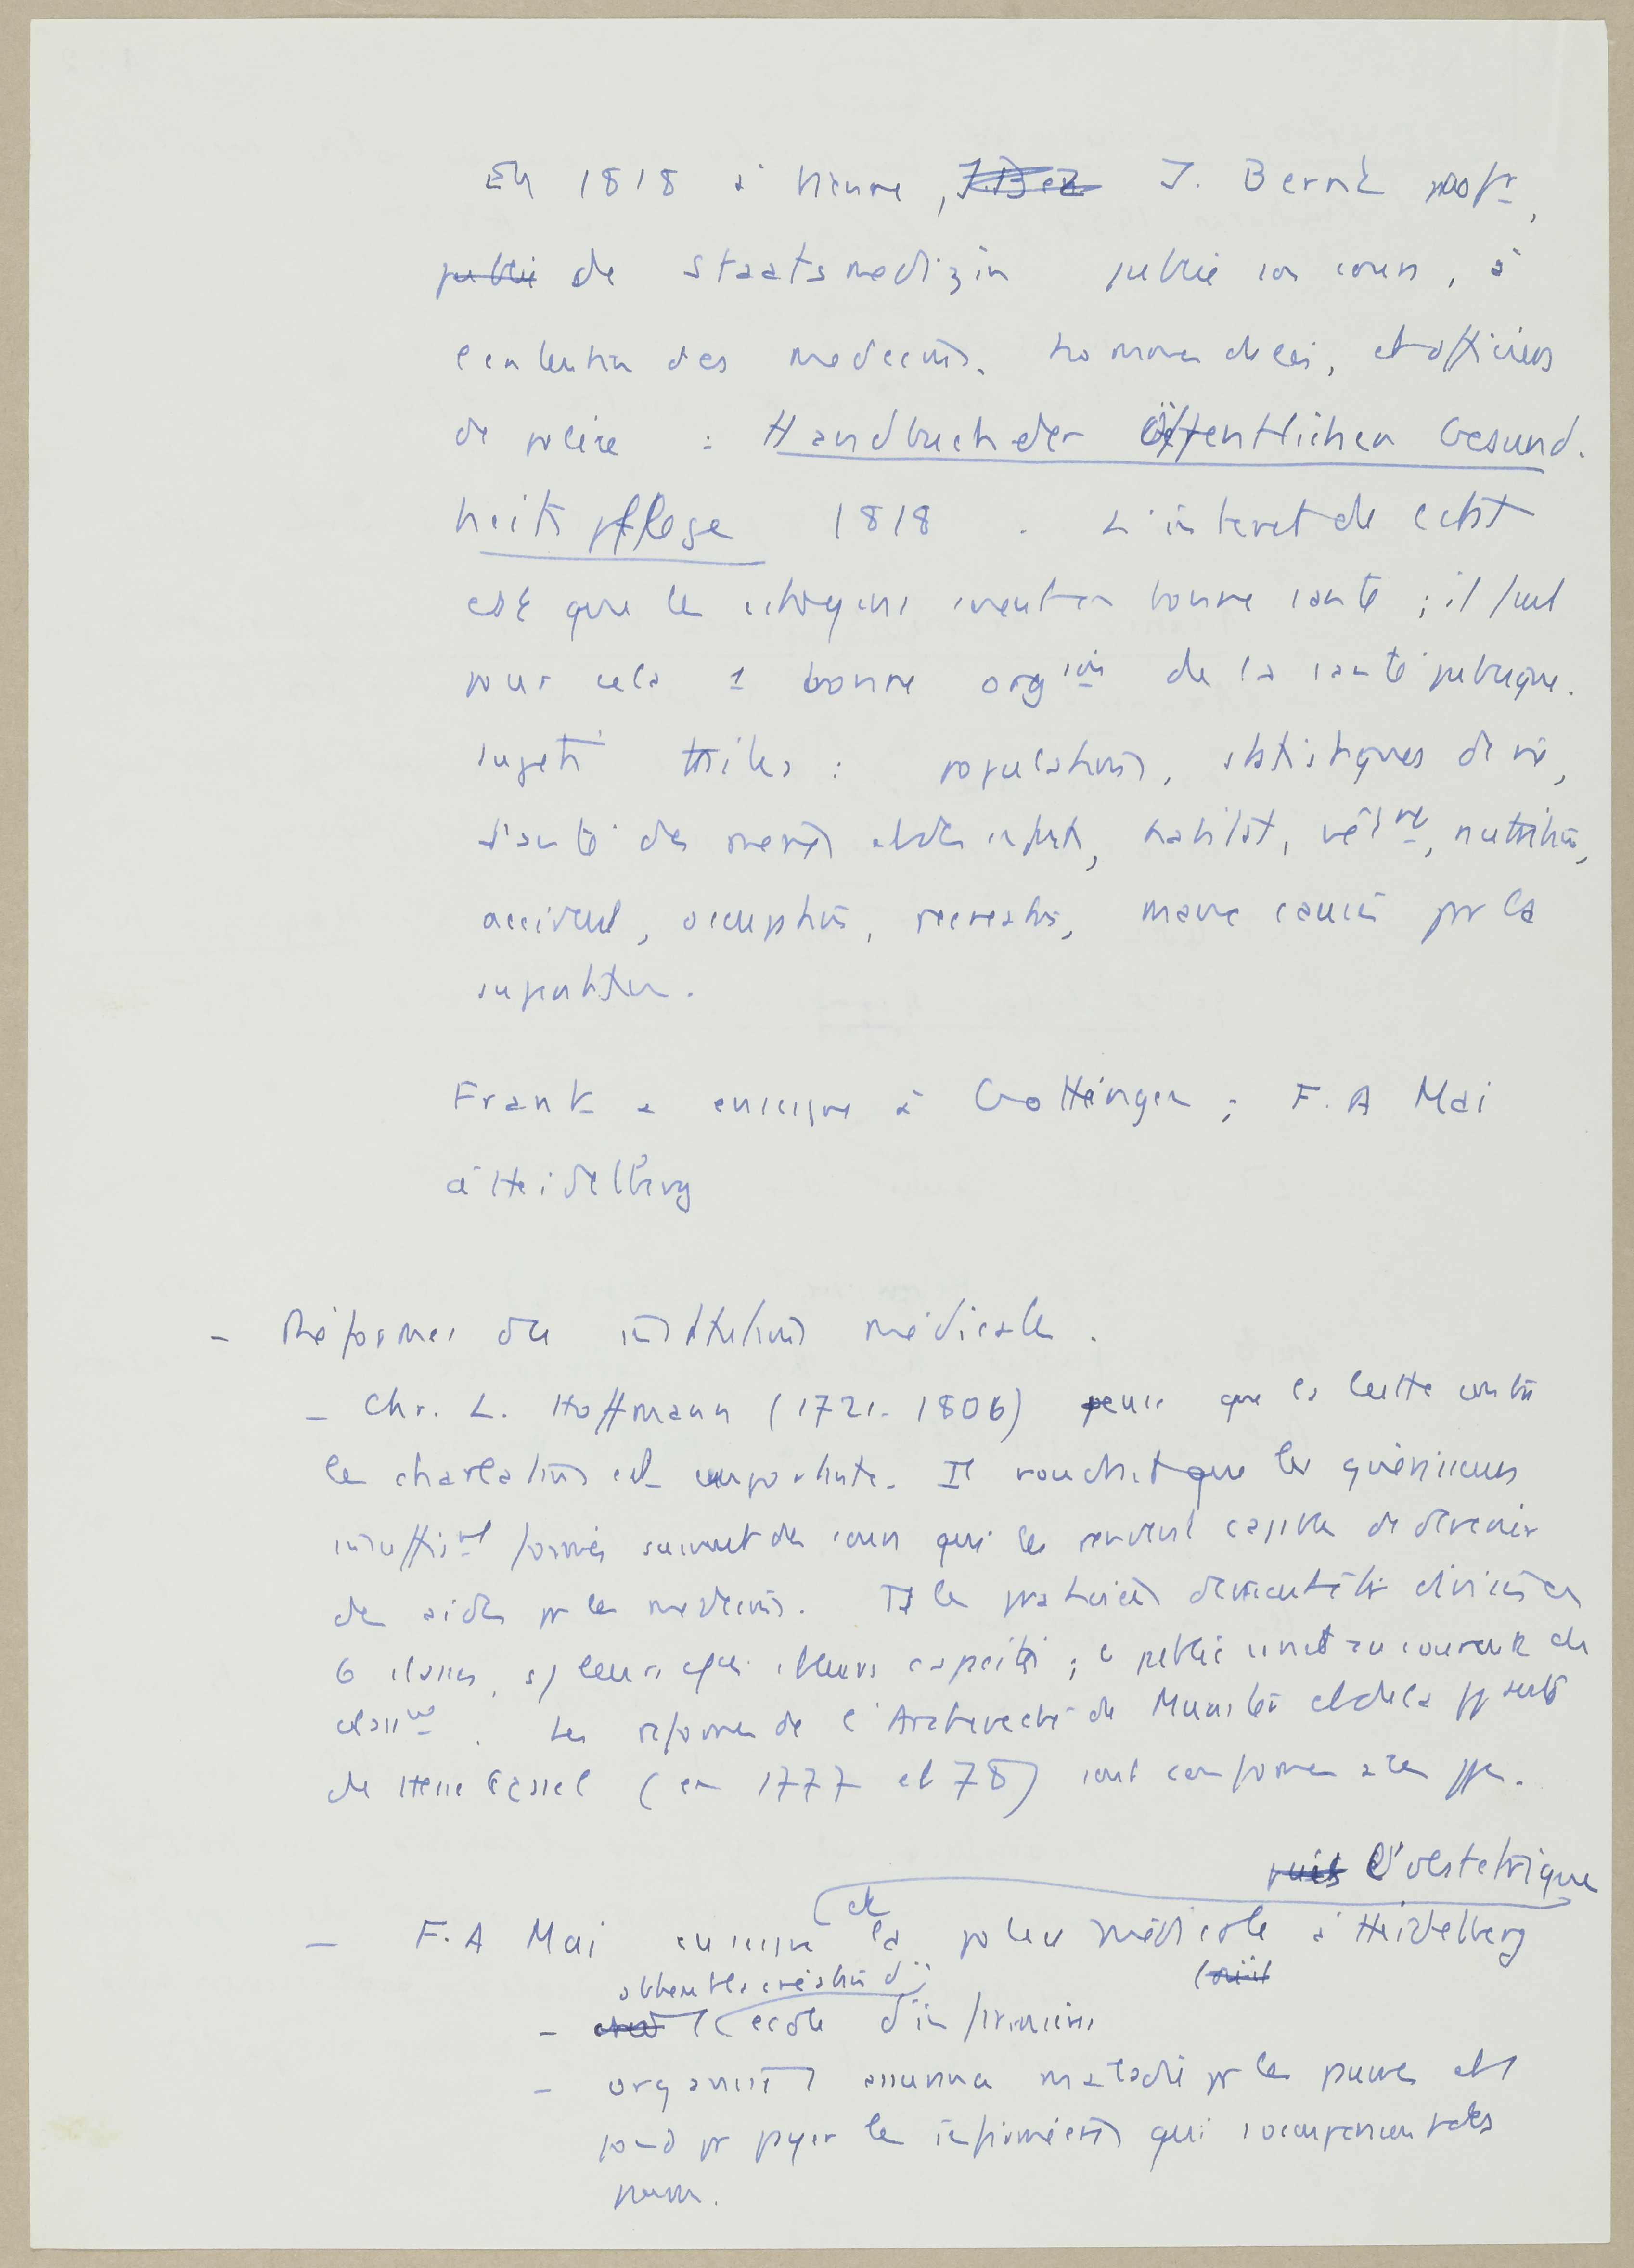 En 1818 à Vienne, J. Ber J. Bernt profr,
publie de Staatsmedizin publie son cours, à
l'intention des médecins, hommes de loi, et officiers
de police : Handbuch der Öffentlichen Gesund-
heitspflege 1818. L'intérêt de l'état
est que les citoyens soient en bonne santé ; il faut
pour cela 1 bonne orgion de la santé publique.
Sujets traités : population, statistiques de vie,
santé des mères et des enfants, habitat, vêtmt, nutrition,
accident, occupations, récréations, maux causés pr la
superstition.
Frank a enseigné à Gottingen ; F. A Mai
à Heidelberg
- Réformes des institutions médicales.
- Chr. L. Hoffmann (1721-1806) pense que la lutte contre
les charlatans est importante. Il voudrait que les guérisseurs
insuffismt formés suivent des cours qui les rendent capables de devenir
des aides pr les médecins. Ts les praticiens devraient être divisés en
6 classes, s/ leurs et leurs capacités ; le public serait au courant du
classmt. Les réformes de l'Archevêché de Munster et de la
de Hesse Cassel (en 1777 et 78) sont conformes à ces ppes.
puis l'obstétrique
- F. A Mai enseigne et la police médicale à Heidelberg
obtient la création d'
- école d'infirmières
- organise assurance maladie pr les pauvres et 1
fond pr payer les infirmières qui s'occuperaient des
pauvres.